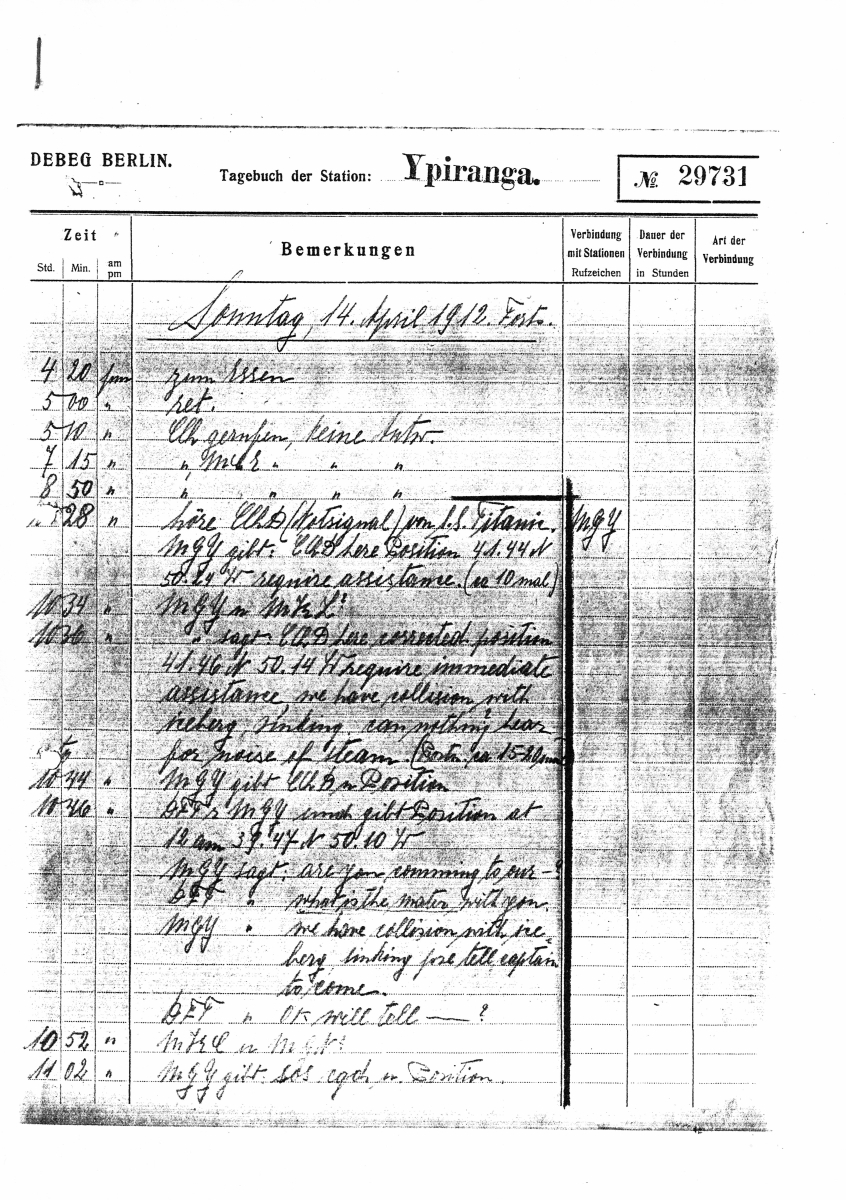 DEBEG BERLIN.
Tagebuch der Station: Ypiranga.
№ 29731
Zeit
Std. Min. am pm
Bemerkungen
Verbindung mit Stationen Rufzeichen
Dauer der Verbindung in Stunden
Art der Verbindung
Sonntag, 14. April 1912. Forts.
4 20 pm zum Essen
5 00 " ret.
5 10 " gerufen, keine Antw.
7 15 " " " " "
8 50 " " " " "
28 " höre CQD (Notsignal) von S.S. Titanic. MGY
MGY gibt: CQD here Position 41.44 N
50.24 W require assistance. (ca 10 mal)
10 34 " MGY
10 36 " " sagt CQD here corrected position
41.46 N 50.14 W require immediate
assistance, we have collision with
iceberg, sinking, can nothing hear
for noise of steam. 15-20
10 44 " MGY gibt CQD u Position
10 46 " DFT MGY und gibt Position at
12 am 39.47 N 50.10 W
MGY sagt: are you comming to our — ?
DFT " what is the mater with you.
MGY " we have collision with ice
berg, sinking, tell captain
to come.
DFT " OK will tell — ?
10 52 "
11 02 " MGY gibt: sos cqd u. Position.